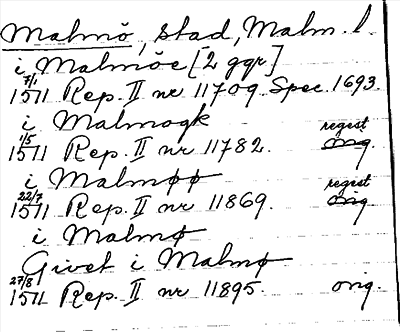 Malmö, stad, Malm. l.
i Malmöe [2 ggr]
7/1 1571 Rep. II nr 11709. Spec. 1693.
i Malmogk regist.
1/5 1571 Rep. II nr 11782. orig.
i Malmøø regist.
22/7 1571 Rep. II nr 11869. orig.
i Malmø
Givet i Malmø
27/8 1571 Rep. II nr 11895. orig.